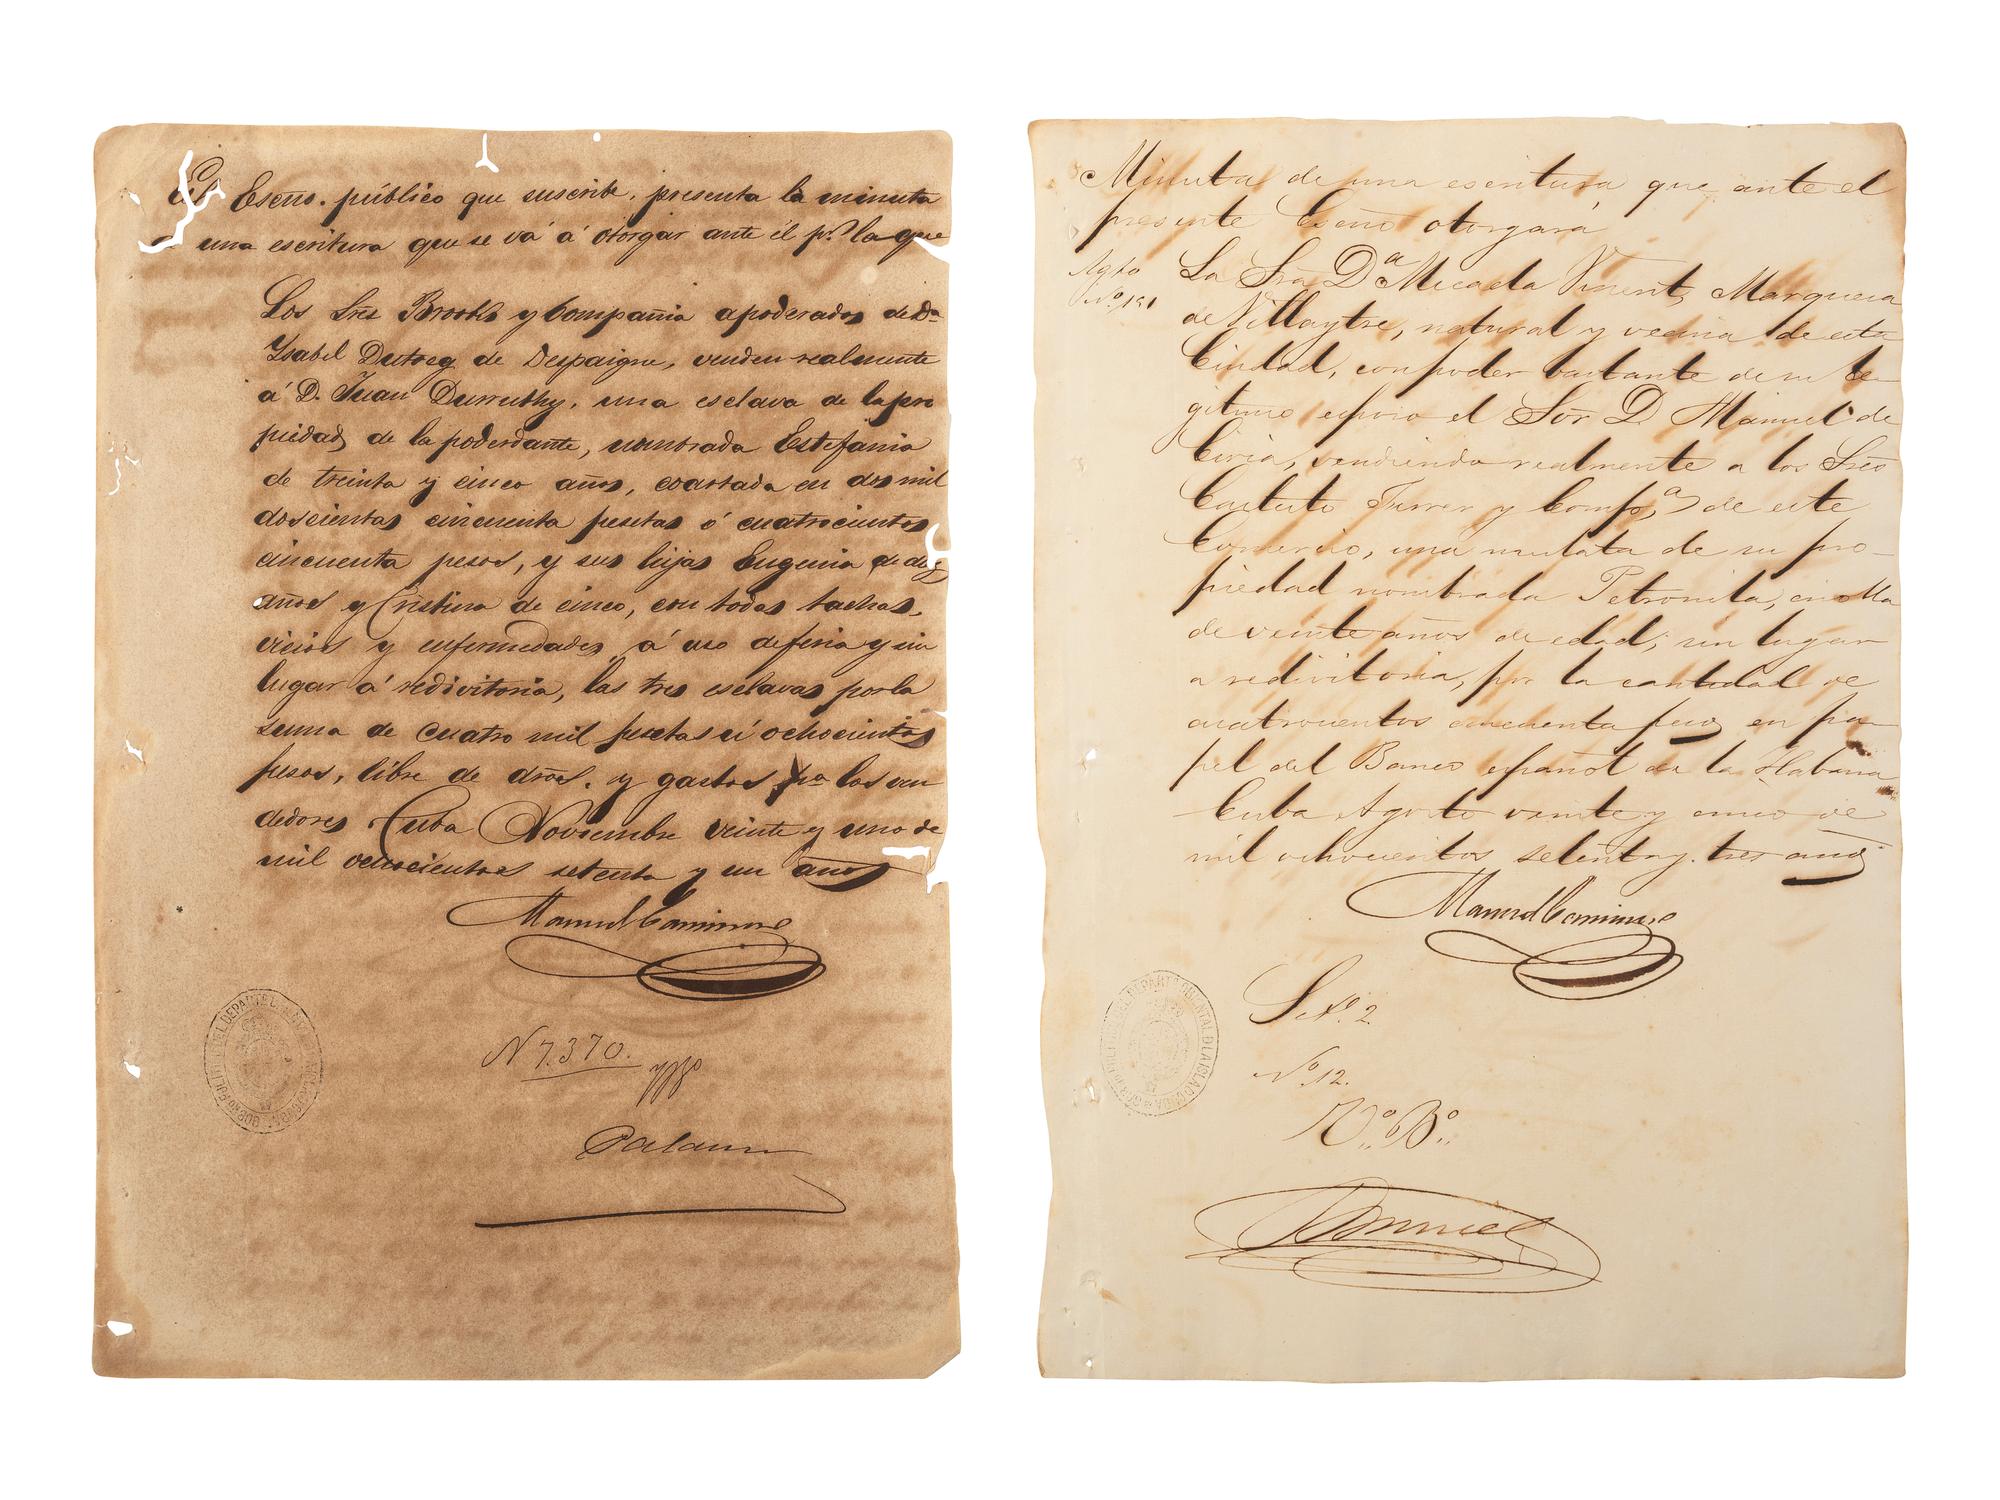 El Escno. público que suscribe, presenta la minuta
una escritura que se vá á otorgar ante él pr. la que
Los Sres Brooks y Compañia apoderados de Da
Ysabel Dutocq de Despaigne, venden realmente
á D. Juan Durruthy, una esclava de la pro
piedad de la poderdante, nombrada Estefania
de treinta y cinco años, coartada en dos mil
doscientas cincuenta pesetas ó cuatrocientos
cincuenta pesos, y sus hijas Eugenia de diez
años y Cristina de cinco, con todas tachas,
vicios y enfermedades, á uso de feria y sin
lugar á redivitoria, las tres esclavas por la
suma de cuatro mil pesetas ú ochocientos
pesos, libre de dros. y gastos pa los ven
dedores Cuba Noviembre veinte y uno de
mil ochocientos setenta y un años
Manuel Caminero
N 7.370.
Minuta de una escritura que ante el
presente Escno otorgará
Agto
No 191
La Sra Da Micaela Vinent, Marquesa
de Villaytre, natural y vecina de esta
Ciudad, con poder bastante de su le-
gitimo esposo el Sor D. Manuel de
Ciria, vendiendo realmente a los Sres
Turrer y Comp.a de este
Comercio, una mulata de su pro-
piedad nombrada Petronila, criolla
de veinte años de edad; sin lugar
a redivitoria, por la cantidad de
cuatrocientos cincuenta pesos en pa-
pel del Banco español de la Habana
Cuba Agosto veinte y cinco de
mil ochocientos setenta y tres años
Manuel Caminero
Set. 2.
No 12.
Vo. Bo.